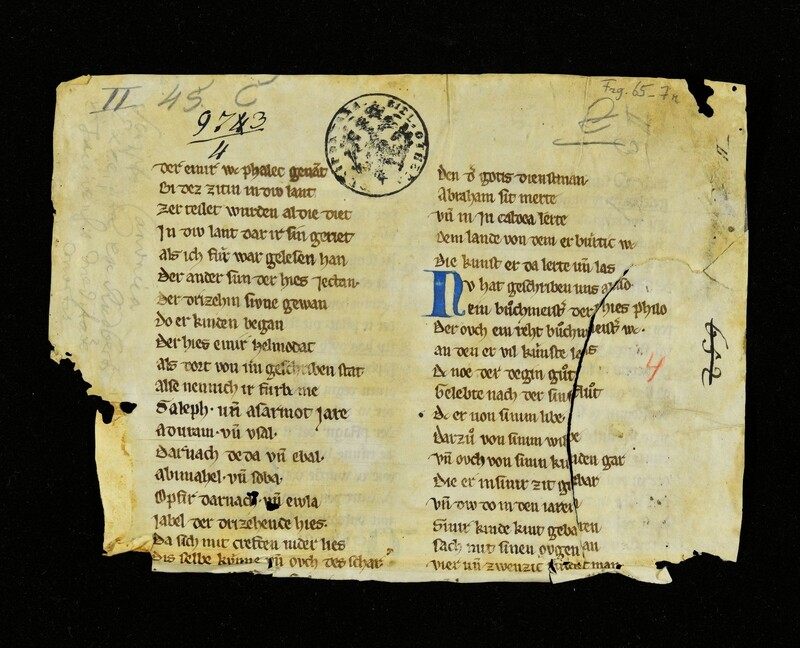 II 45 C
9743
4
Frg. 65-7n
der einir wc phalec genāt
Bi dez zitin in dw lant
Zer teilet wurden al die diet
In dw lant dar ir sin geriet
als ich für war gelesen han
Der ander sun der hies Jectan·
Der drizehin süne gewan
do er kinden began
Der hies einir helmodat
als dort von im geschriben stat
alse nennich ir fürbc me
Saleph· vn̄ asarmot Jare
aduram· vn̄ vsal·
Darnach deda vn̄ ebal·
abimahel· vn̄ soba·
Opfir darnach vn̄ ewla
Jabel der drizehende hies·
Da sich mit creften nider lies
Dis selbe künne vn̄ ovch des schar
Den gotis dienstman
Abraham sit merte
vn̄ in Jn caldea lerte
Dem lande von dem er bürtic wc
Die kunst er da lerte vn̄ las
Nv hat geschriben uns
ein büchmeistˢ der hies philo
Der ovch ein reht büchmeistˢ wc·
an den er vil künste las
Dc noe der degin gůt
Gelebte nach der sinflůt
Dc er von sinim libe
Darzů von sinim wibe
vn̄ ovch von sinin kinden gar
Die er insinir zit gebar
vn̄ dw do in den iaren
Sinir kinde kint gebaren
sach mit sinen ovgen an
vier vn̄ zwenzic
4
652